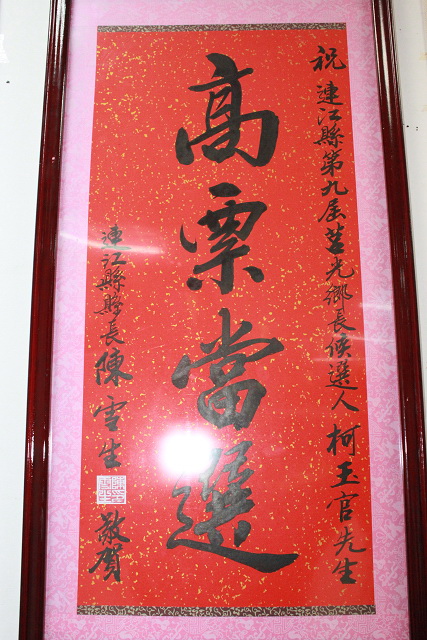 祝 連江縣第九屆莒光鄉長候選人柯玉官先生
高票當選
連江縣縣長陳雪生 敬賀